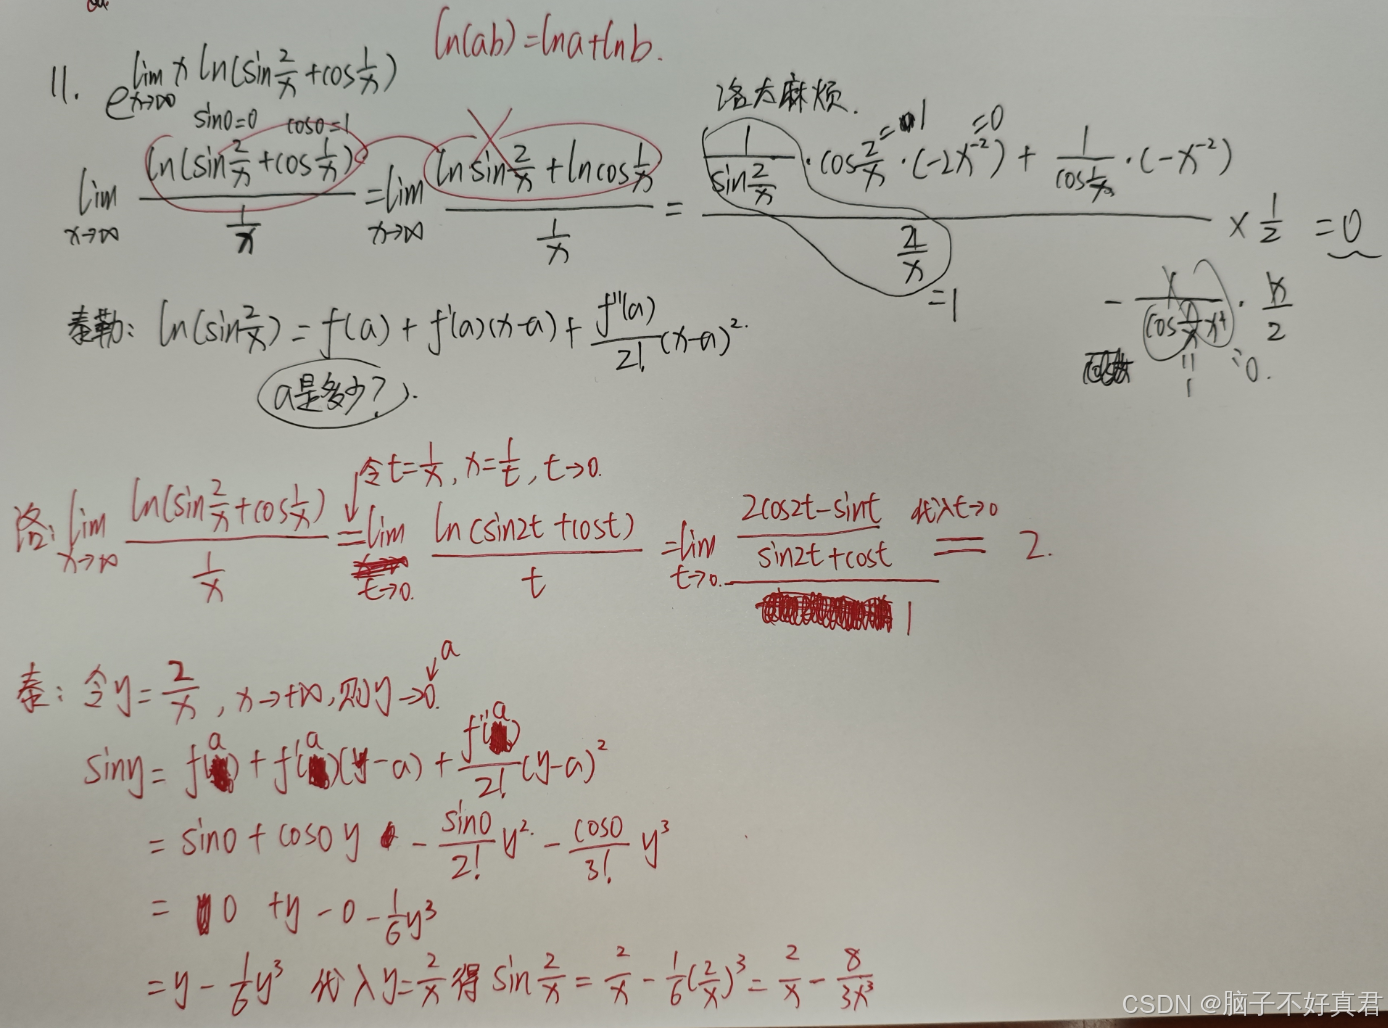 ln(ab)=lna+lnb.
11. e^{lim_{x→∞} x ln(sin 2/x + cos 1/x)}
sin0=0 cos0=1
洛太麻烦.
lim_{x→∞} ln(sin 2/x + cos 1/x) / (1/x) = lim_{x→∞} (ln sin 2/x + ln cos 1/x) / (1/x) = (1/(sin 2/x) · cos 2/x · (-2x^{-2}) + 1/(cos 1/x) · (-x^{-2})) / (2/x) × 1/2 = 0
=1 =0
=1
泰勒: ln(sin 2/x) = f(a) + f'(a)(x-a) + f''(a)/2! (x-a)^2.
a是多少?
令t=1/x, x=1/t, t→0.
洛: lim_{x→∞} ln(sin 2/x + cos 1/x) / (1/x) = lim_{t→0} ln(sin2t + cost) / t = lim_{t→0} ((2cos2t - sint) / (sin2t + cost)) / 1 代入t→0 = 2.
a
泰: 令y=2/x, x→+∞, 则y→0.
siny = f(a) + f'(a)(y-a) + f''(a)/2! (y-a)^2
= sin0 + cos0 y - sin0/2! y^2 - cos0/3! y^3
= 0 + y - 0 - 1/6 y^3
= y - 1/6 y^3 代入y=2/x得 sin 2/x = 2/x - 1/6 (2/x)^3 = 2/x - 8/3x^3
CSDN @脑子不好真君